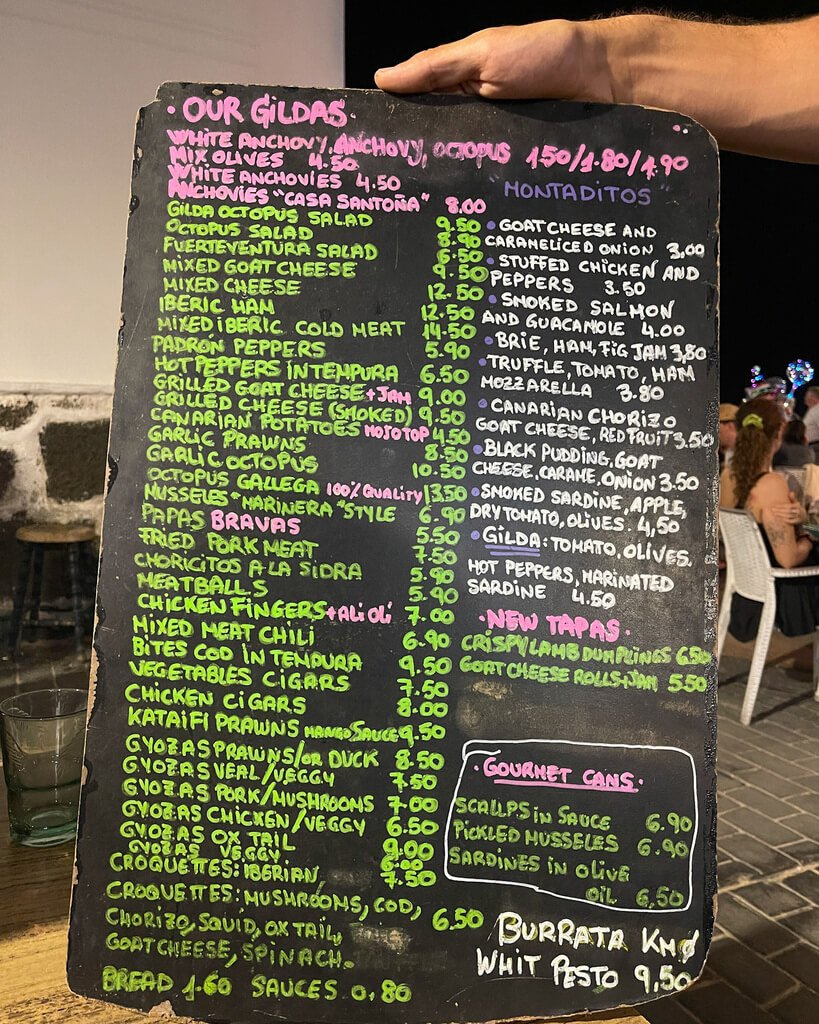 · OUR GILDAS ·
WHITE ANCHOVY, ANCHOVY, OCTOPUS 1.50/1.80/1.90
MIX OLIVES 4.50
WHITE ANCHOVIES 4.50
ANCHOVIES "CASA SANTOÑA" 8.00
GILDA OCTOPUS SALAD 9.50
OCTOPUS SALAD 8.90
FUERTEVENTURA SALAD 6.50
MIXED GOAT CHEESE 9.50
MIXED CHEESE 12.50
IBERIC HAM 12.50
MIXED IBERIC COLD MEAT 14.50
PADRON PEPPERS 5.90
HOT PEPPERS IN TEMPURA 6.50
GRILLED GOAT CHEESE + JAM 9.00
GRILLED CHEESE (SMOKED) 9.50
CANARIAN POTATOES MOJO TOP 4.50
GARLIC PRAWNS 8.50
GARLIC OCTOPUS 10.50
OCTOPUS GALLEGA 100% QUALITY 13.50
MUSSELES "MARINERA" STYLE 6.90
PAPAS BRAVAS 5.50
FRIED PORK MEAT 7.50
CHORICITOS A LA SIDRA 5.90
MEATBALLS 5.90
CHICKEN FINGERS + ALI OLI 7.00
MIXED MEAT CHILI 6.90
BITES COD IN TENPURA 9.50
VEGETABLES CIGARS 7.50
CHICKEN CIGARS 8.00
KATAIFI PRAWNS MANGO SAUCE 9.50
GYOZAS PRAWNS/OR DUCK 8.50
GYOZAS VEAL/VEGGY 7.50
GYOZAS PORK/MUSHROOMS 7.00
GYOZAS CHICKEN/VEGGY 6.50
GYOZAS OX TAIL 9.00
GYOZAS VEGGY 6.00
CROQUETTES: IBERIAN 7.50
CROQUETTES: MUSHROOMS, COD, 6.50
CHORIZO, SQUID, OX TAIL,
GOAT CHEESE, SPINACH.
BREAD 1.60 SAUCES 0.80
"MONTADITOS"
• GOAT CHEESE AND
CARAMELICED ONION 3,00
• STUFFED CHICKEN AND
PEPPERS 3.50
• SMOKED SALMON
AND GUACAMOLE 4.00
• BRIE, HAM, FIG JAM 3,80
• TRUFFLE, TOMATO, HAM
MOZZARELLA 3.80
• CANARIAN CHORIZO
GOAT CHEESE, RED FRUIT 3.50
• BLACK PUDDING, GOAT
CHEESE, CARAME, ONION 3.50
• SMOKED SARDINE, APPLE,
DRY TOMATO, OLIVES. 4,50
• GILDA: TOMATO, OLIVES.
HOT PEPPERS, MARINATED
SARDINE 4.50
· NEW TAPAS ·
CRISPY LAMB DUMPLINGS 6.50
GOAT CHEESE ROLLS + JAM 5.50
· GOURMET CANS ·
SCALLPS IN SAUCE 6.90
PICKLED MUSSELES 6.90
SARDINES IN OLIVE
OIL 6,50
BURRATA KM0
WHIT PESTO 9,50